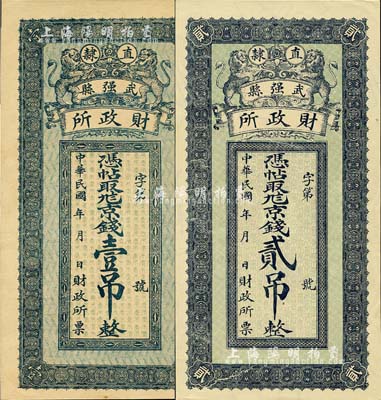 上海陽明拍賣
直隸
武强縣
財政所
字第 號
憑帖取九京錢壹吊整
中華民國 年 月 日財政所票
貳
貳
直隸
武强縣
財政所
字第 號
憑帖取九京錢貳吊整
中華民國 年 月 日財政所票
貳
貳
上海陽明拍賣